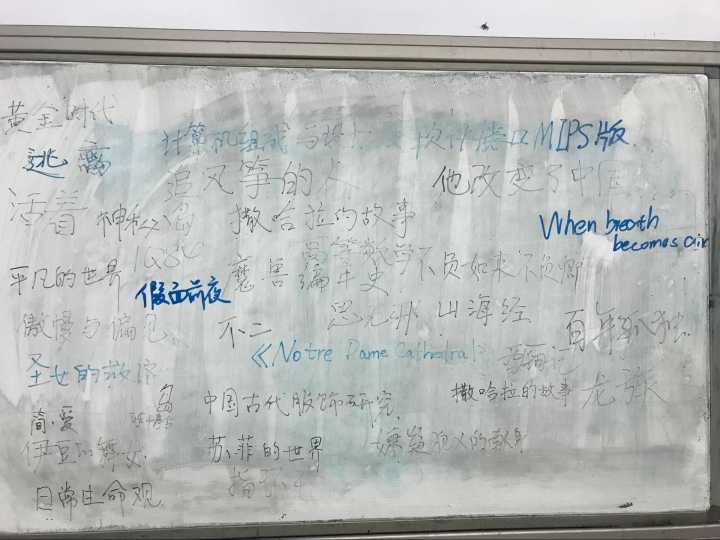 黄金时代
计算机组成与设计 软件接口MIPS版
逃离
追风筝的人
他改变了中国
活着
神秘岛
撒哈拉的故事
When breath
becomes air
1984
高等数学
不负如来不负卿
平凡的世界
魔兽编年史
假面前夜
傲慢与偏见
不二
思无邪
山海经
百年孤独
《Notre Dame Cathedral》
圣女的救济
撒哈拉的故事
龙张
简·爱
岛
中国古代服饰研究
伊豆的舞女
苏菲的世界
嫌疑犯X的献身
指环王
日常生命观